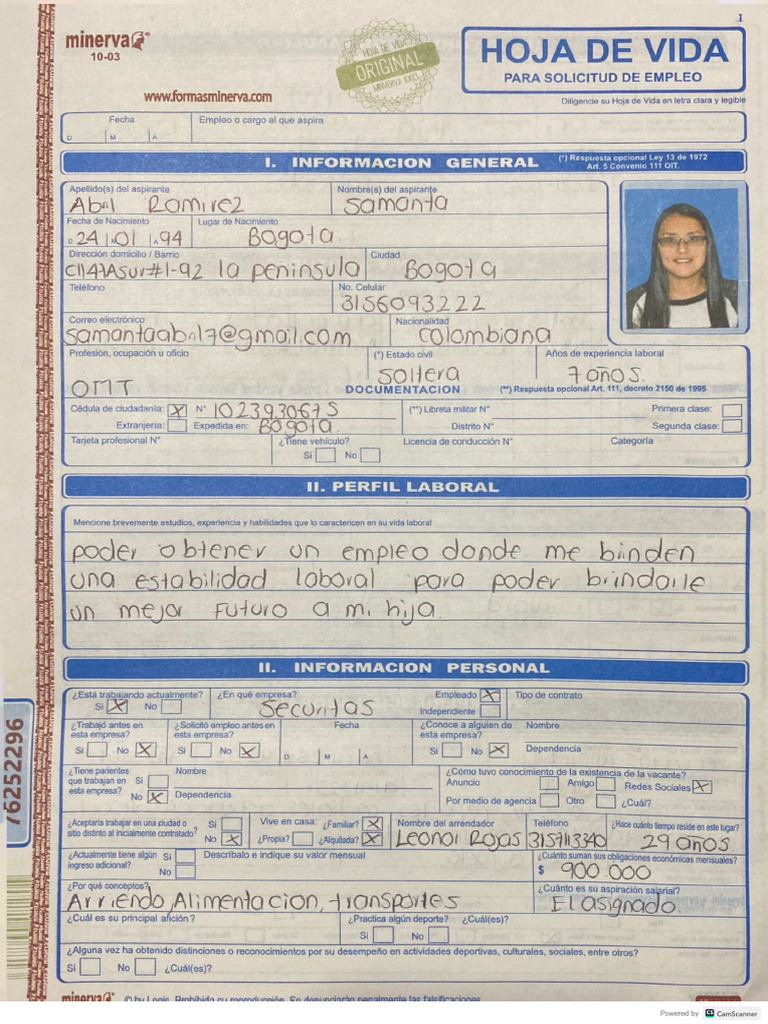 1
minerva
10-03
HOJA DE VIDA ORIGINAL MINVERVA 1003
HOJA DE VIDA
PARA SOLICITUD DE EMPLEO
www.formasminerva.com
Diligencie su Hoja de Vida en letra clara y legible
Fecha Empleo o cargo al que aspira
D M A
I. INFORMACION GENERAL (*) Respuesta opcional Ley 13 de 1972
Art. 5 Convenio 111 OIT.
Apellido(s) del aspirante Nombre(s) del aspirante
Abril Ramirez Samanta
Fecha de Nacimiento Lugar de Nacimiento
D 24 M 01 A 94 Bogota.
Dirección domicilio / Barrio Ciudad
Cll47Asur#1-92 la peninsula Bogota
Teléfono No. Celular
3156093222
Correo electrónico Nacionalidad
samantaabril7@gmail.com colombiana
Profesión, ocupación u oficio (*) Estado civil Años de experiencia laboral
OMT soltera 7 años.
DOCUMENTACION (**) Respuesta opcional Art. 111, decreto 2150 de 1995
Cédula de ciudadanía: X N° 1023930675 (**) Libreta militar N° Primera clase:
Extranjería: Expedida en: Bogota. Distrito N° Segunda clase:
Tarjeta profesional N° ¿Tiene vehículo? Licencia de conducción N° Categoría
Si No
II. PERFIL LABORAL
Mencione brevemente estudios, experiencia y habilidades que lo caractericen en su vida laboral
poder obtener un empleo donde me brinden
una estabilidad laboral para poder brindarle
un mejor futuro a mi hija.
II. INFORMACION PERSONAL
¿Está trabajando actualmente? ¿En qué empresa? Empleado X Tipo de contrato
Si X No Securitas Independiente
¿Trabajó antes en esta empresa? ¿Solicitó empleo antes en esta empresa? Fecha ¿Conoce a alguien de esta empresa? Nombre
Si No X Si No X D M A Si No X Dependencia
¿Tiene parientes que trabajan en esta empresa? Si No X Nombre Dependencia
¿Cómo tuvo conocimiento de la existencia de la vacante?
Anuncio Amigo Redes Sociales X
Por medio de agencia Otro ¿Cuál?
¿Aceptaría trabajar en una ciudad o sitio distinto al inicialmente contratado? Si No X Vive en casa: ¿Familiar? X ¿Propia? ¿Alquilada? X Nombre del arrendador Teléfono ¿Hace cuánto tiempo reside en este lugar?
Leonor Rojas 3157113340 29 años
¿Actualmente tiene algún ingreso adicional? Si No Descríbalo e indique su valor mensual ¿Cuánto suman sus obligaciones económicas mensuales?
$ 900.000
¿Por qué conceptos? ¿Cuánto es su aspiración salarial?
Arriendo Alimentacion, transportes El asignado.
¿Cuál es su principal afición? ¿Practica algún deporte? ¿Cuál(es)?
Si No
¿Alguna vez ha obtenido distinciones o reconocimientos por su desempeño en actividades deportivas, culturales, sociales, entre otros?
Si No ¿Cuál(es)?
76252296
minerva © by Legis. Prohibida su reproducción. Se denunciarán penalmente las falsificaciones
Powered by CS CamScanner